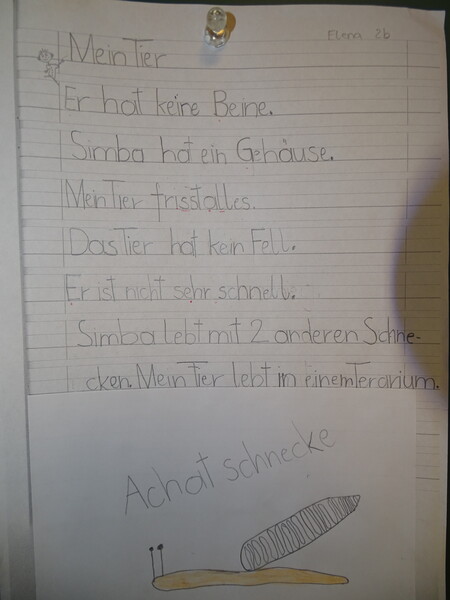 Elena 2b
Mein Tier
Er hat keine Beine.
Simba hat ein Gehäuse.
Mein Tier frisst alles.
Das Tier hat kein Fell.
Er ist nicht sehr schnell.
Simba lebt mit 2 anderen Schne-
cken. Mein Tier lebt in einem Terarium.
Achat schnecke